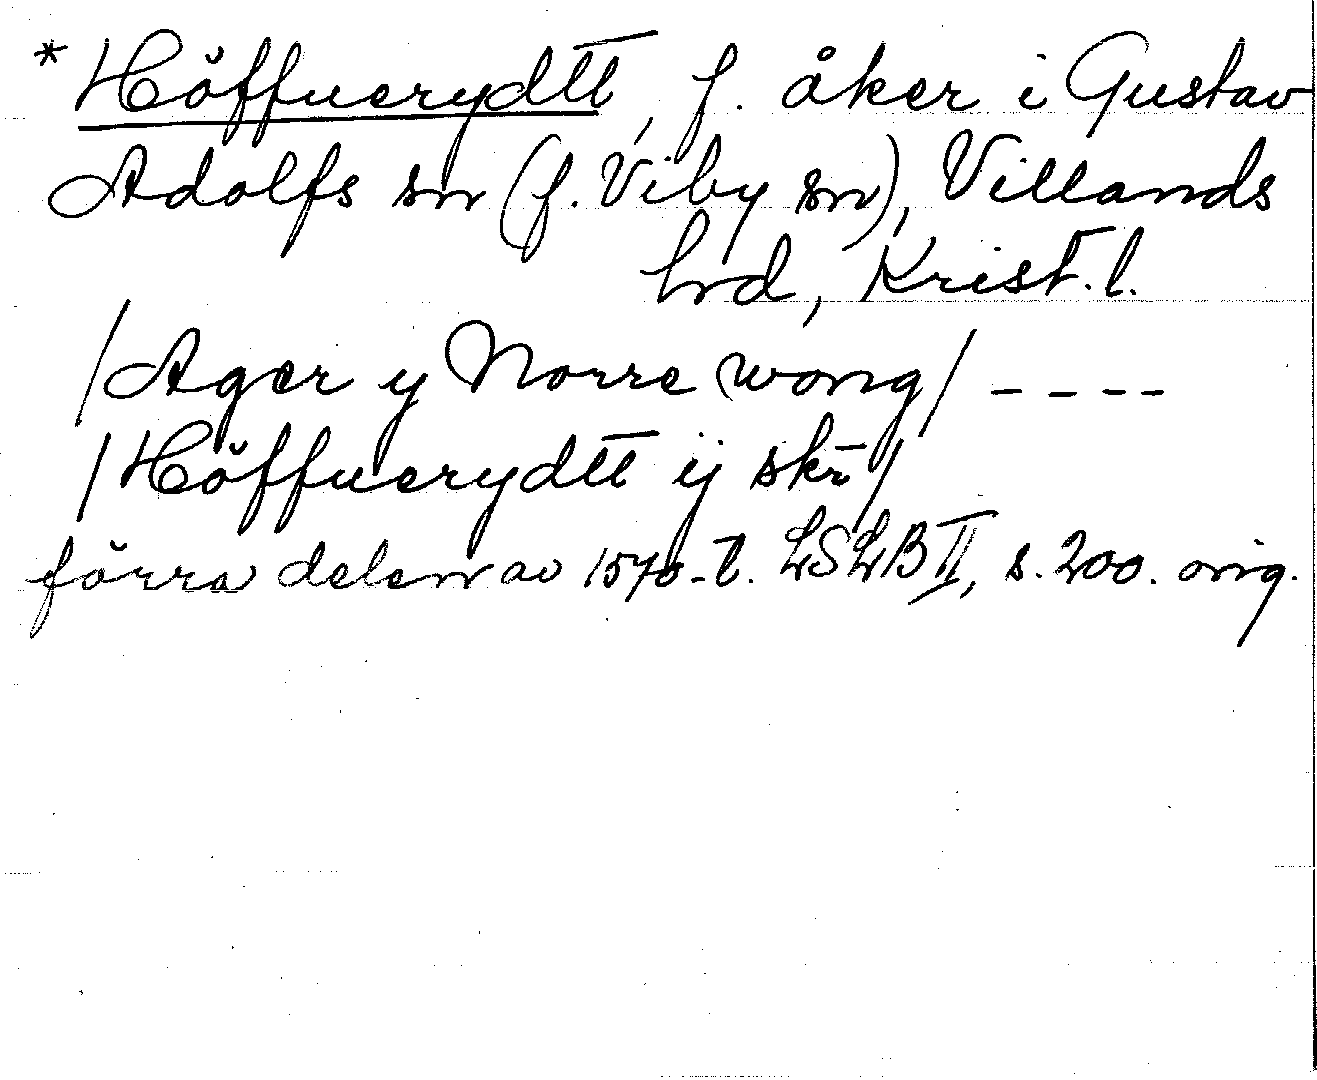 * Höffuerydtt, f. åker i Gustav
Adolfs sn (f. Viby sn), Villands
hrd, Krist. l.
/Ager y Norre wong/ - - - -
/Höffuerydtt ij skr̄/
förra delen av 1570-t. LSLB II, s. 200. orig.